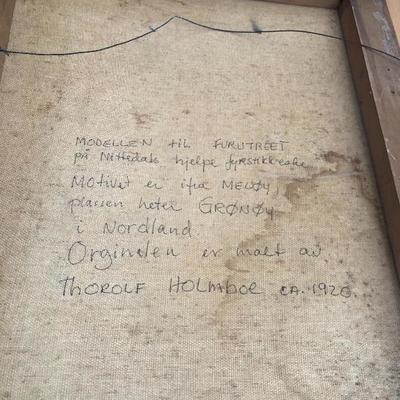 MODELLEN til FURUTREET
på Nittedals hjelpe fyrstikkeske
MOTIVET er ifra MELØY,
plassen heter GRØNØY
i Nordland.
Orginalen er malt av.
THOROLF HOLMBOE CA. 1920.